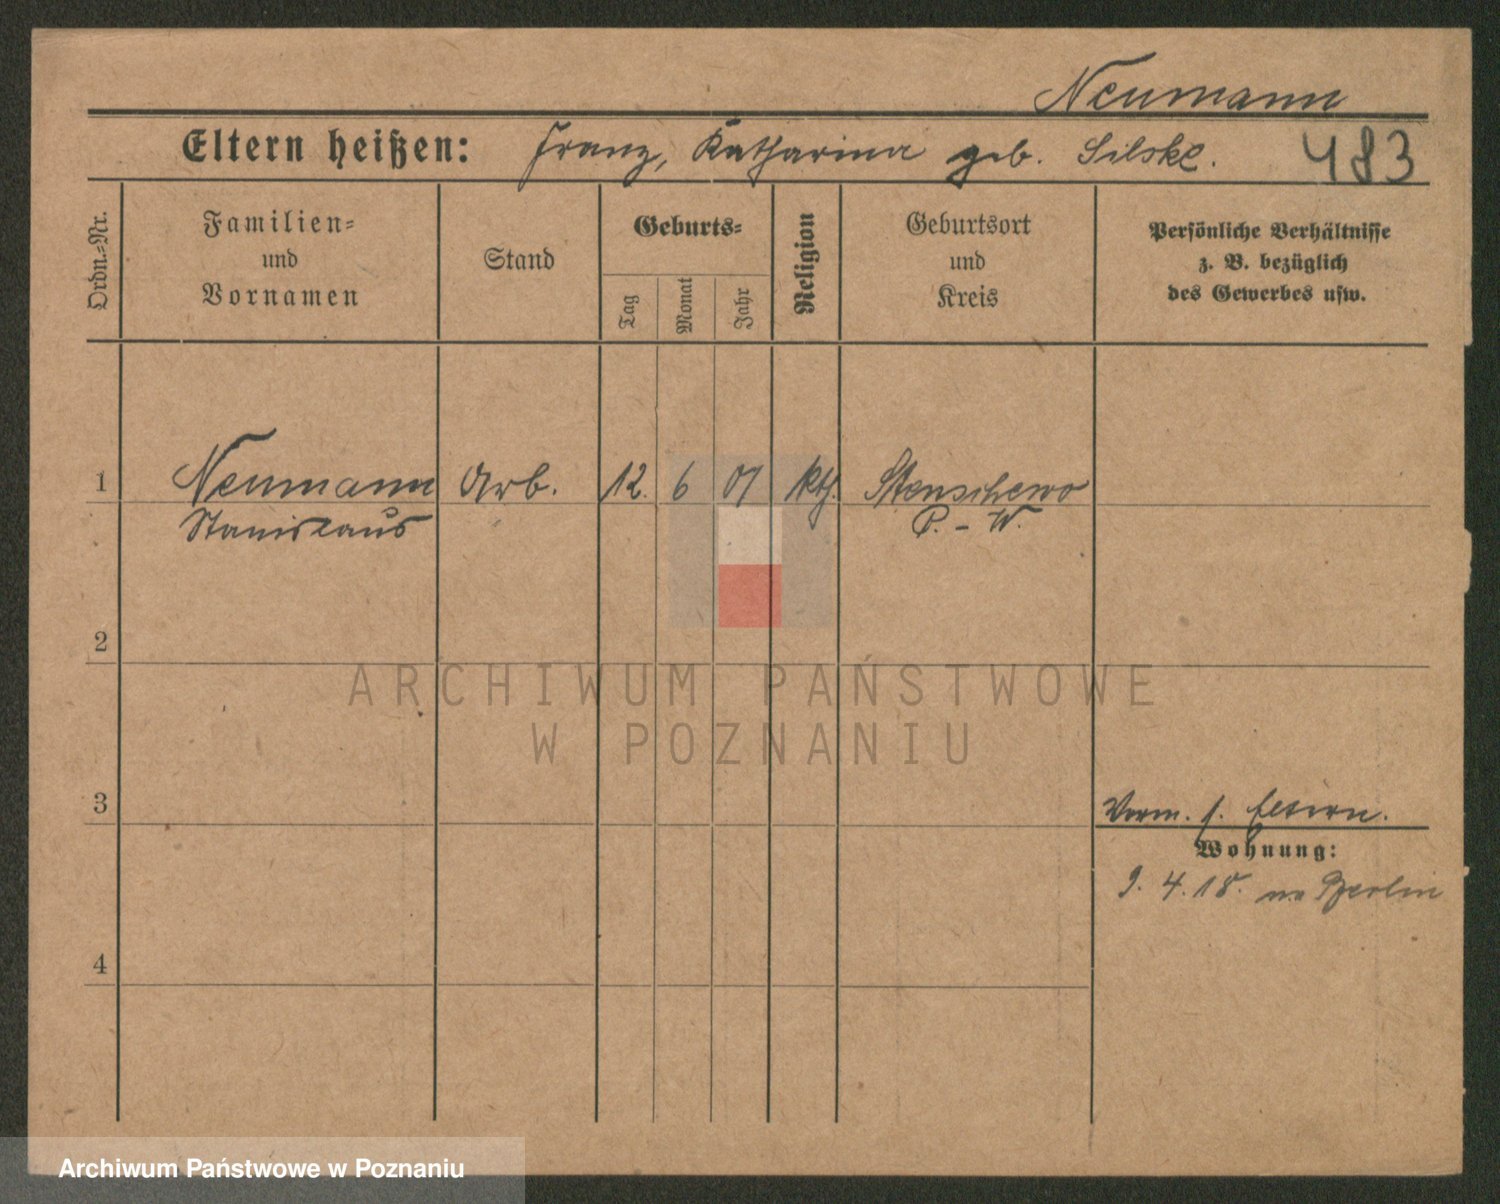 Neumann
Eltern heißen: Franz, Katharina geb. Silske.
483
Ordn.=Nr.
Familien=
und
Vornamen
Stand
Geburts=
Tag
Monat
Jahr
Religion
Geburtsort
und
Kreis
Persönliche Verhältnisse
z. B. bezüglich
des Gewerbes usw.
1 Neumann Arb. 12. 6 01 kth. Stenschewo
Stanislaus P. - W.
2
ARCHIWUM PAŃSTWOWE
W POZNANIU
3
Vorm. s. Eltern.
Wohnung:
9. 4. 18. Berlin
4
Archiwum Państwowe w Poznaniu